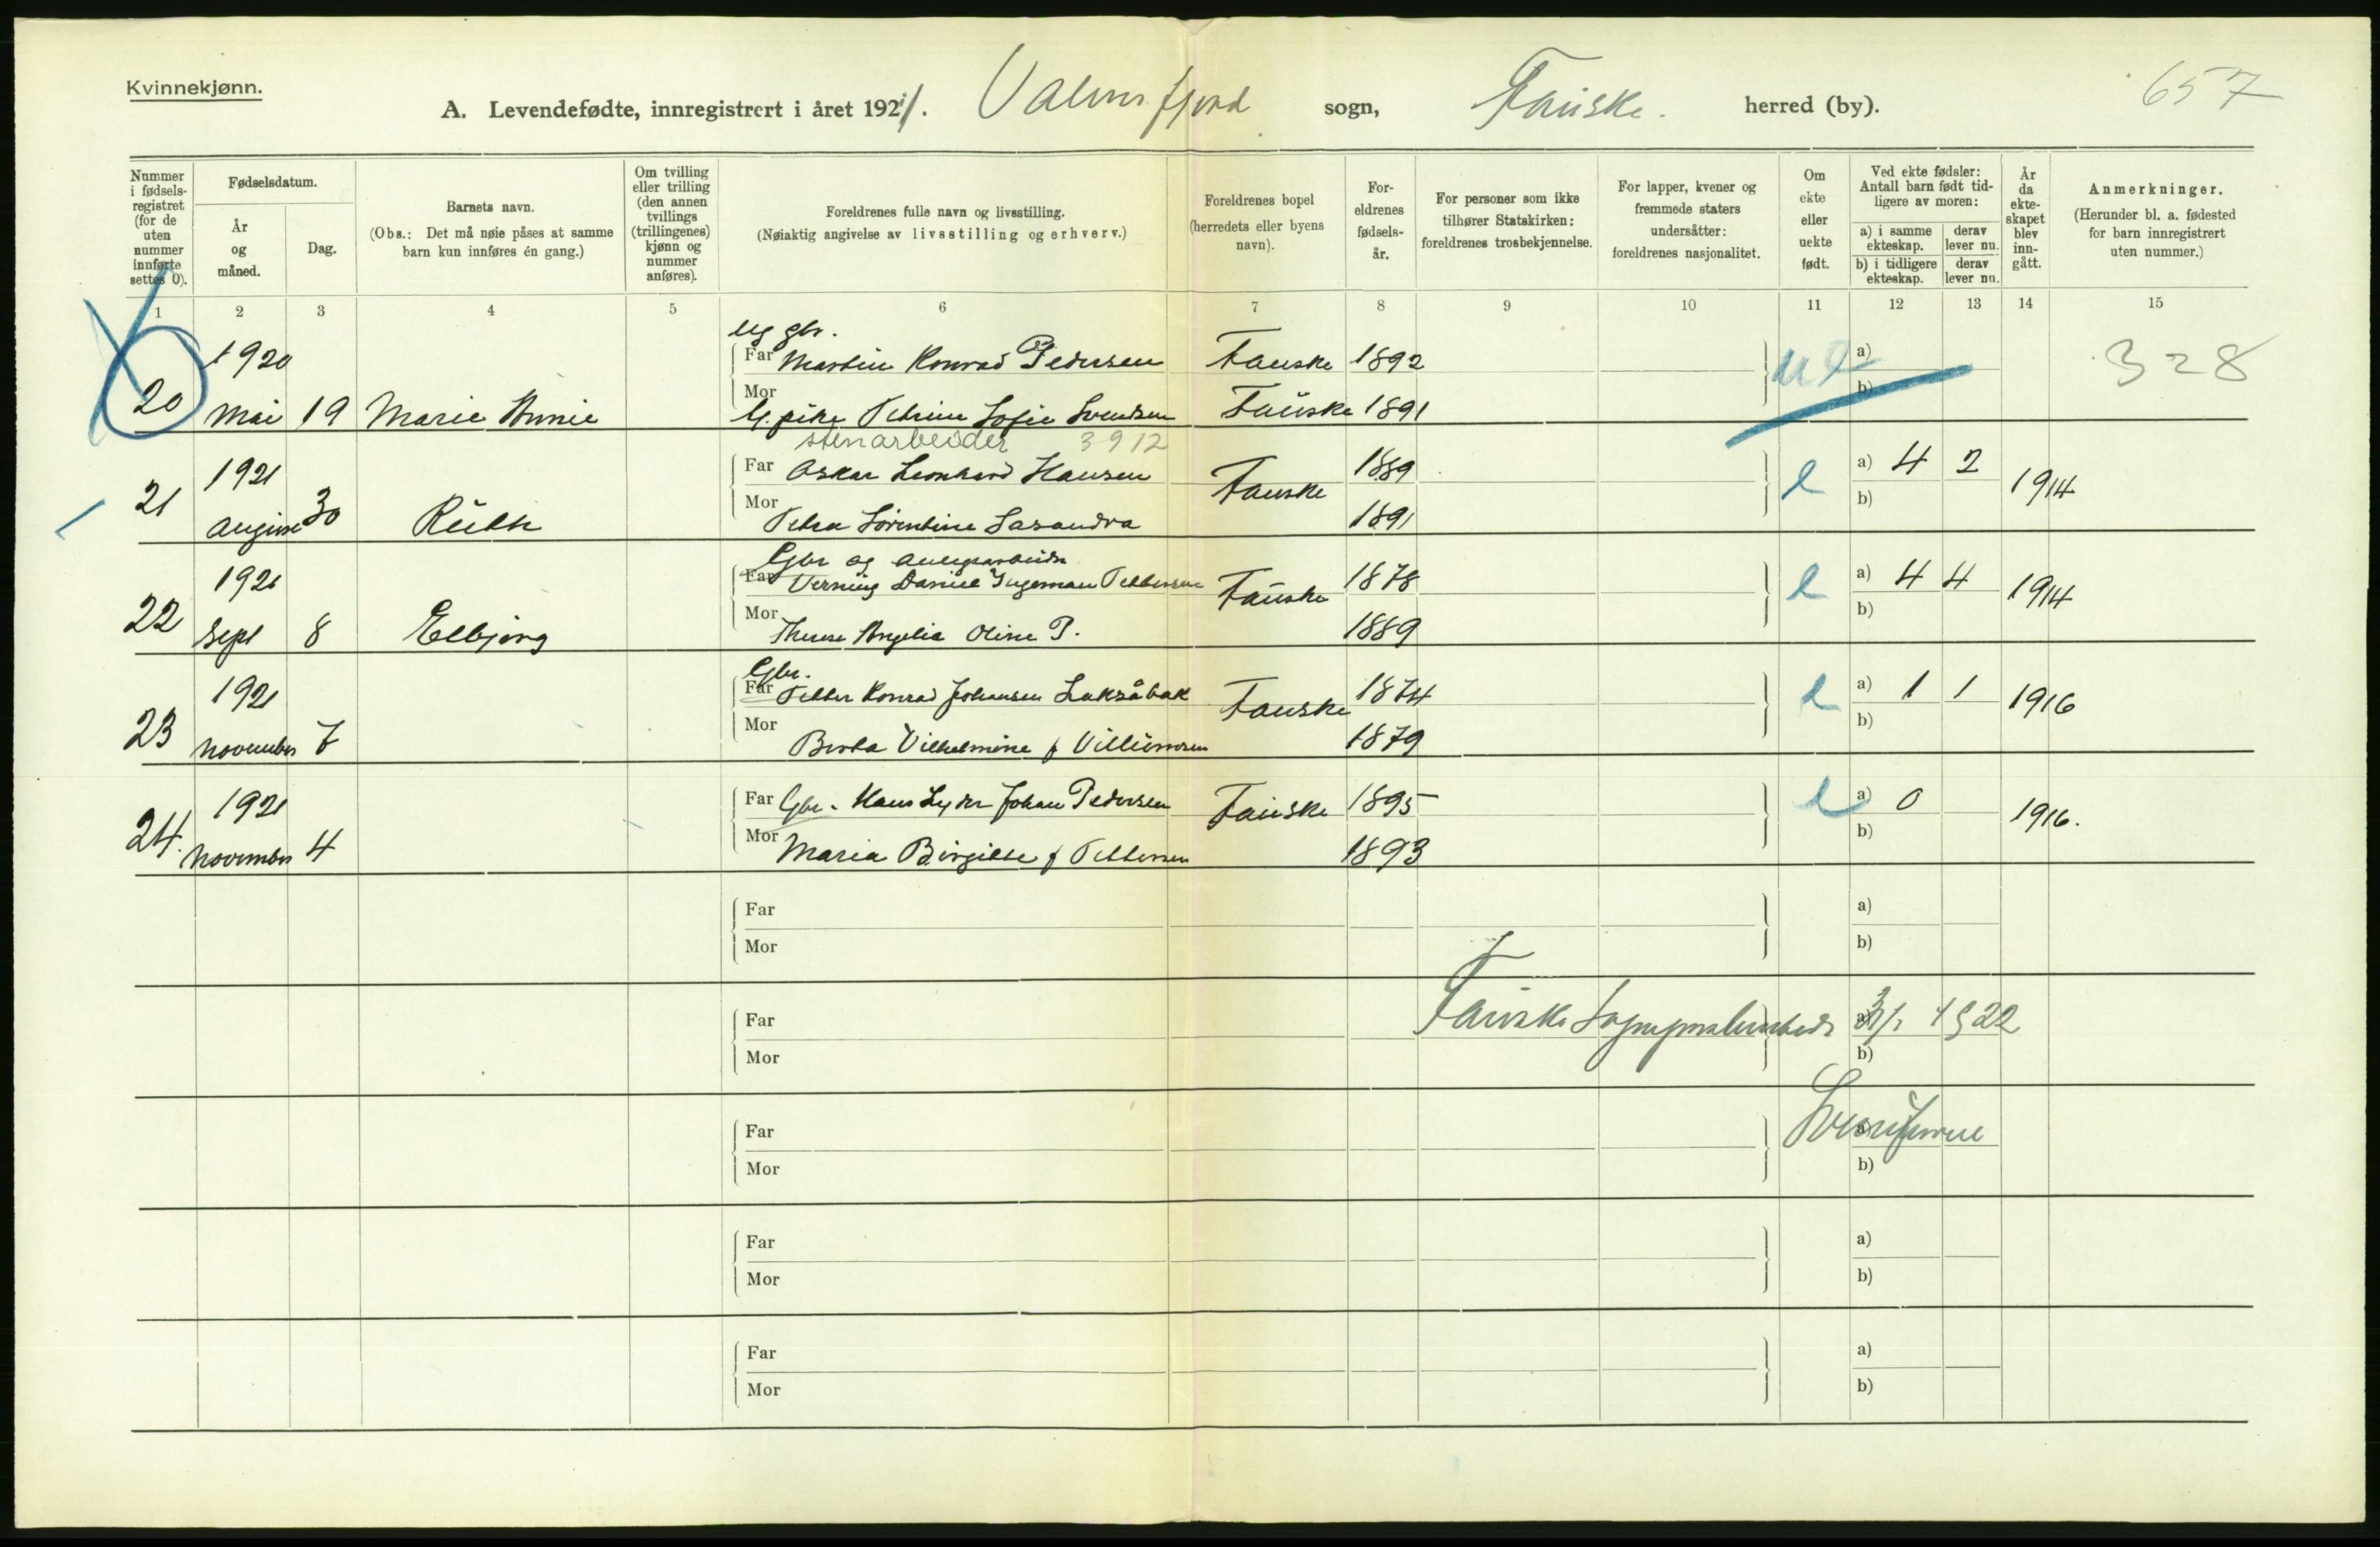 Kvinnekjønn.
657
A. Levendefødte, innregistrert i året 1921. Valnesfjord sogn, Fauske. herred (by).
Nummer i fødsels-registret (for de uten nummer innførte settes 0).
Fødselsdatum.
År og måned.
Dag.
Barnets navn.
(Obs.: Det må nøie påses at samme barn kun innføres én gang.)
Om tvilling eller trilling (den annen tvillings (trillingenes) kjønn og nummer anføres).
Foreldrenes fulle navn og livsstilling.
(Nøiaktig angivelse av livsstilling og erhverv.)
Foreldrenes bopel (herredets eller byens navn).
For-eldrenes fødsels-år.
For personer som ikke tilhører Statskirken: foreldrenes trosbekjennelse.
For lapper, kvener og fremmede staters undersåtter: foreldrenes nasjonalitet.
Om ekte eller uekte født.
Ved ekte fødsler: Antall barn født tid-ligere av moren:
a) i samme ekteskap. derav lever nu.
b) i tidligere ekteskap. derav lever nu.
År da ekte-skapet blev inn-gått.
Anmerkninger.
(Herunder bl. a. fødested for barn innregistrert uten nummer.)
1 2 3 4 5 6 7 8 9 10 11 12 13 14 15
Ug gbr.
1920 Far Martin Konrad Pedersen Fauske 1892 ue a) 328
20 Mai 19 Marie Annie Mor G. pike Petrine Sofie Svendsen Fauske 1891 b)
stenarbeider 3912
1921 Far Oskar Leonhard Hansen Fauske 1889 e a) 4 2 1914
21 August 30 Ruth Mor Petra Sørentine Lasandra 1891 b)
Gbr og anlegsarbeider
1921 Far Verning Daniel Ingeman Pettersen Fauske 1878 e a) 4 4 1914
22 Sept 8 Elbjørg Mor Therese Angelia Oline P. 1889 b)
Gbr.
1921 Far Petter Konrad Johansen Laksåbak Fauske 1874 e a) 1 1 1916
23 November 7 Mor Berta Vilhelmine f Villumsen 1879 b)
1921 Far Gbr. Hans Lyder Johan Pedersen Fauske 1895 e a) 0 1916.
24. November 4 Mor Maria Birgitte f Pettersen 1893 b)
Far a)
Mor b)
Far Fauske Sogneprestembede 1922
Mor b)
Far
Mor b)
Far a)
Mor b)
Far a)
Mor b)